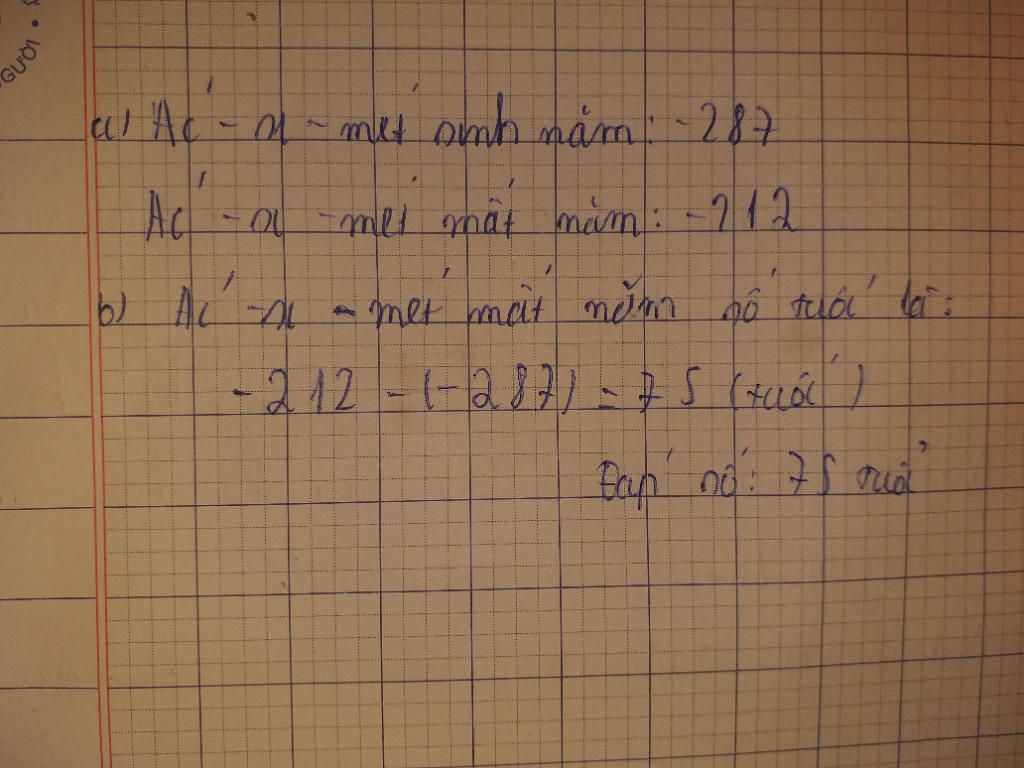 GƯỜI •
a) Ác - si - mét sinh năm: -287
Ác - si - mét mất năm: -212
b) Ác - si - mét mất năm số tuổi là:
-212 - (-287) = 75 (tuổi)
Đáp số: 75 tuổi